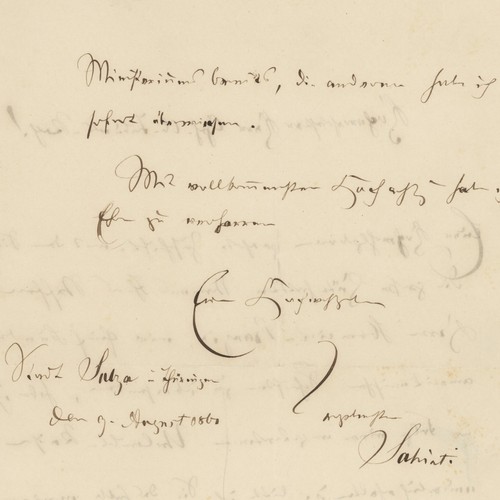 Ministeriums bereits, die anderen habe ich
sofort überwiesen.
Mit vollkommenster Hochachtung habe ich
Ehre zu verharren
Euer Hochwohlgeboren
Stadt Sulza in Thüringen
den 9. August 1860 ergebenster